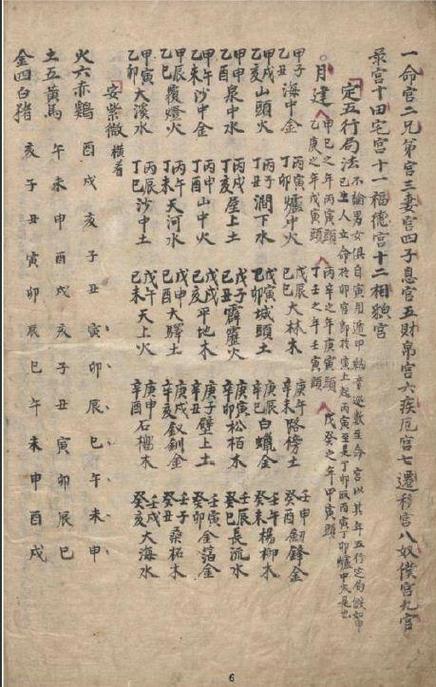 一命宫二兄弟宫三妻宫四子息宫五財帛宫六疾厄宫七遷移宫八奴僕宫九官
祿宫十田宅宫十一福德宫十二相貌宫
定五行局法 不論男女俱自寅用遁甲納音逆數至命宮以其年五行定局假如甲
己生人立命在卯宮即從寅上起丙寅至是丁卯取丙寅丁卯爐中火是也
月建 甲己之年丙寅頭 丙辛之年庚寅頭 戊癸之年甲寅頭
乙庚之年戊寅頭 丁壬之年壬寅頭
甲子乙丑海中金 丙寅丁卯爐中火 戊辰己巳大林木 庚午辛未路傍土 壬申癸酉劍鋒金
甲戌乙亥山頭火 丙子丁丑澗下水 戊寅己卯城頭土 庚辰辛巳白蠟金 壬午癸未楊柳木
甲申乙酉泉中水 丙戌丁亥屋上土 戊子己丑霹靂火 庚寅辛卯松栢木 壬辰癸巳長流水
甲午乙未沙中金 丙申丁酉山中火 戊戌己亥平地木 庚子辛丑壁上土 壬寅癸卯金箔金
甲辰乙巳覆燈火 丙午丁未天河水 戊申己酉大驛土 庚戌辛亥釵釧金 壬子癸丑桑柘木
甲寅乙卯大溪水 丙辰丁巳沙中土 戊午己未天上火 庚申辛酉石榴木 壬戌癸亥大海水
安紫微 橫看
火六赤鷄 酉戌亥子丑寅卯辰巳午未申
土五黄馬 午未申酉戌亥子丑寅卯辰巳
金四白猪 亥子丑寅卯辰巳午未申酉戌
6